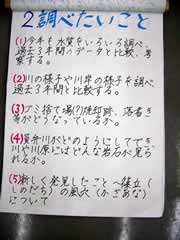 2調べたいこと
(1)今年も水質をいろいろ調べ、
過去3年間のデータと比較、考
察する。
(2)川の様子や川岸の様子を調べ、
過去3年間と比較。
(3)ゴミ捨て場(?)焼却跡、落書き
等がどうなっているか。
(4)川がどのようにしてでき
川や川原にはどんな岩石が見ら
れるか。
(5)新しく発見したこと〜篠立(
しのだち)の風穴(かざあな)
について